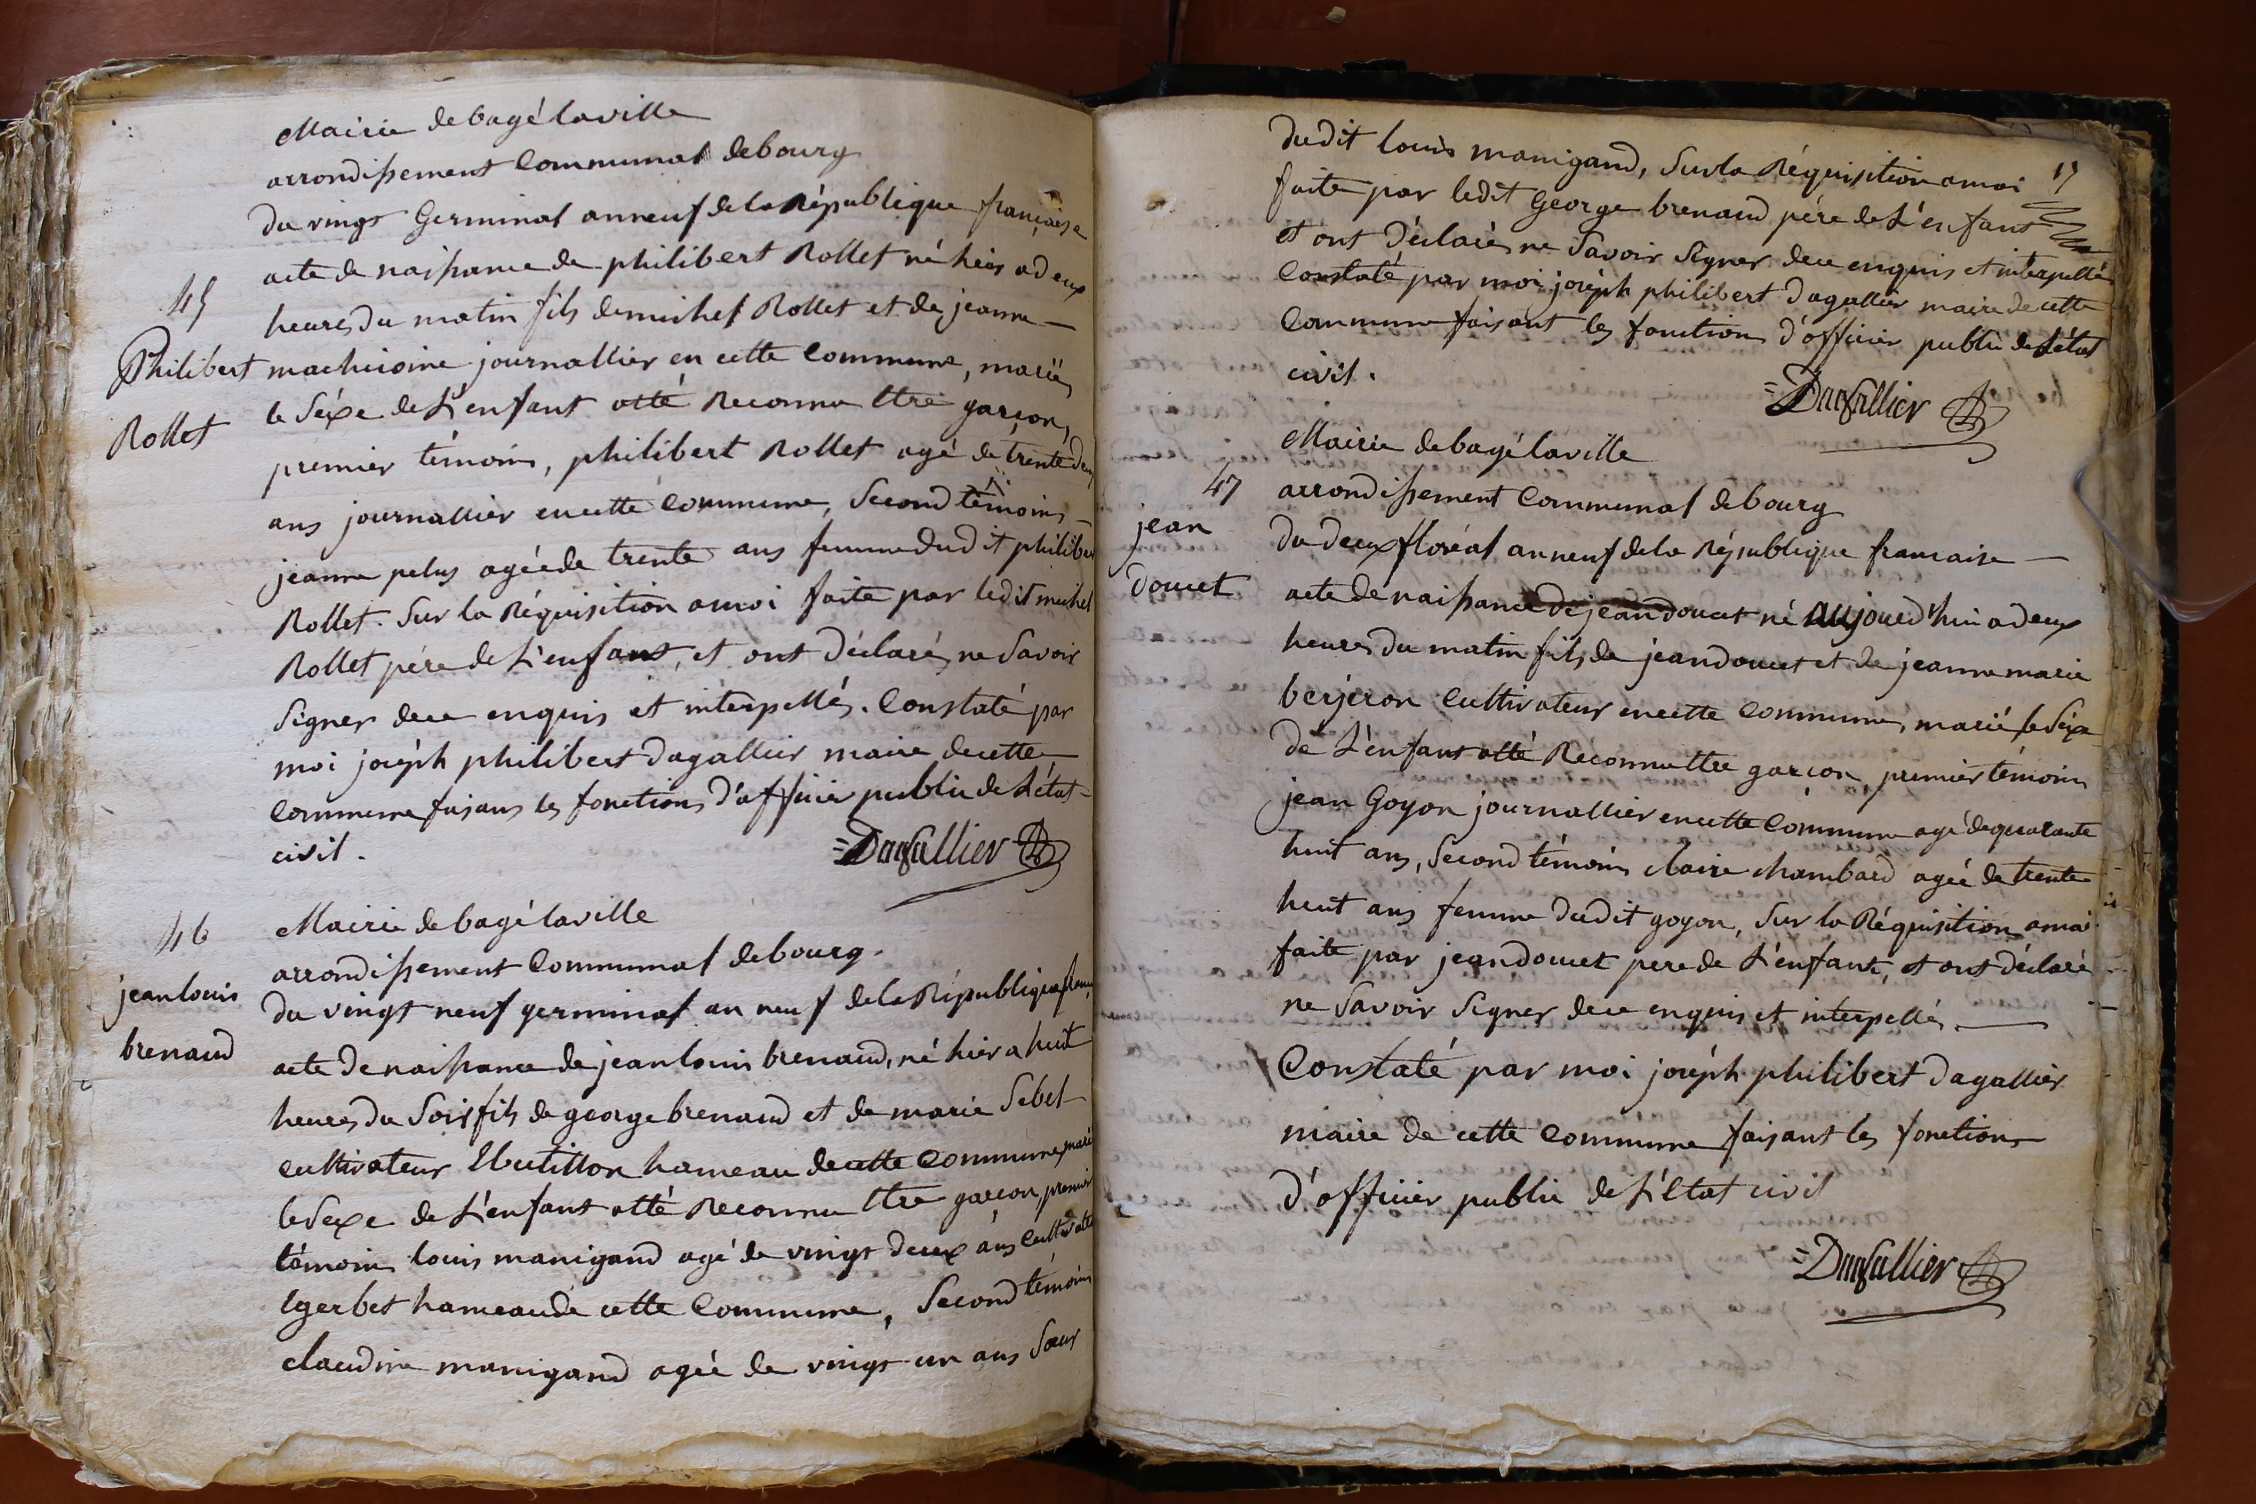 Mairie de bagé laville
arrondissement Communal de bourg
du vingt Germinal an neuf de la République française
acte de naissance de philibert Rollet né hier a deux
45
heures du matin fils de michel Rollet et de jeanne
Philibert
Rollet
journallier en cette Commune, mariés
le séxe de L'enfant atté Reconnu ttre garçon,
premier témoins, philibert Rollet agé de trente deux
ans journallier en cette Commune, Second témoins
jeanne pelus agée de trente ans femme dudit philibert
Rollet. Sur la Réquisition a moi faite par ledit michel
Rollet pére de L'enfant, et ont déclarés ne Savoir
Signer de ce enquis et intérpellés. Constaté par
moi joséph philibert dagallier maire de cette
Commune faisans les fonctions d'officier public de L'état
civil.
=Dagallier
46
jean louis
brenaud
Mairie de bagé laville
arrondissement Communal de bourg.
du vingt neuf germinal an neuf de la République
acte de naissance de jean louis brenaud, né hier a huit
heures du Soir fils de george brenaud et de marie Sebet
cultivateur hameau de cette Commune, marié
le Sexe de L'enfant atté Reconnu ttre garçon, premier
témoins louis manigand agé de vingt deux ans
hameau de cette Commune, Second témoins
claudine manigand agée de vingt un ans Sœur
dudit louis manigand, Sur la Réquisition a moi
faite par ledit George brenaud pére de L'enfant
et ont déclarés ne Savoir Signer de ce enquis et intérpellés
Constaté par moi joséph philibert dagallier maire de cette
Commune faisant les fonctions d'officier public de L'état
civil.
=Dagallier
47
jean
doucet
Mairie de bagé laville
arrondissement Communal de bourg
du deux floréal an neuf de la République francaise
acte de naissance de jean doucet né aujourd'hui a deux
heures du matin fils de jean doucet et de jeanne marie
berjeron cultivateur en cette Commune, marié le Séxe
de L'enfant atté Reconnu ttre garçon, premier témoins
jean Goyon journallier en cette Commune agé de quarante
huit ans, Second témoins claire Chambard agée de trente
huit ans femme dudit goyon, Sur la Réquisition a moi
faite par jean doucet pere de L'enfant, et ont déclaré
ne Savoir Signer de ce enquis et interpellés
Constaté par moi joséph philibert dagallier
maire de cette Commune faisant les fonctions
d'officier public de L'état civil
=Dagallier